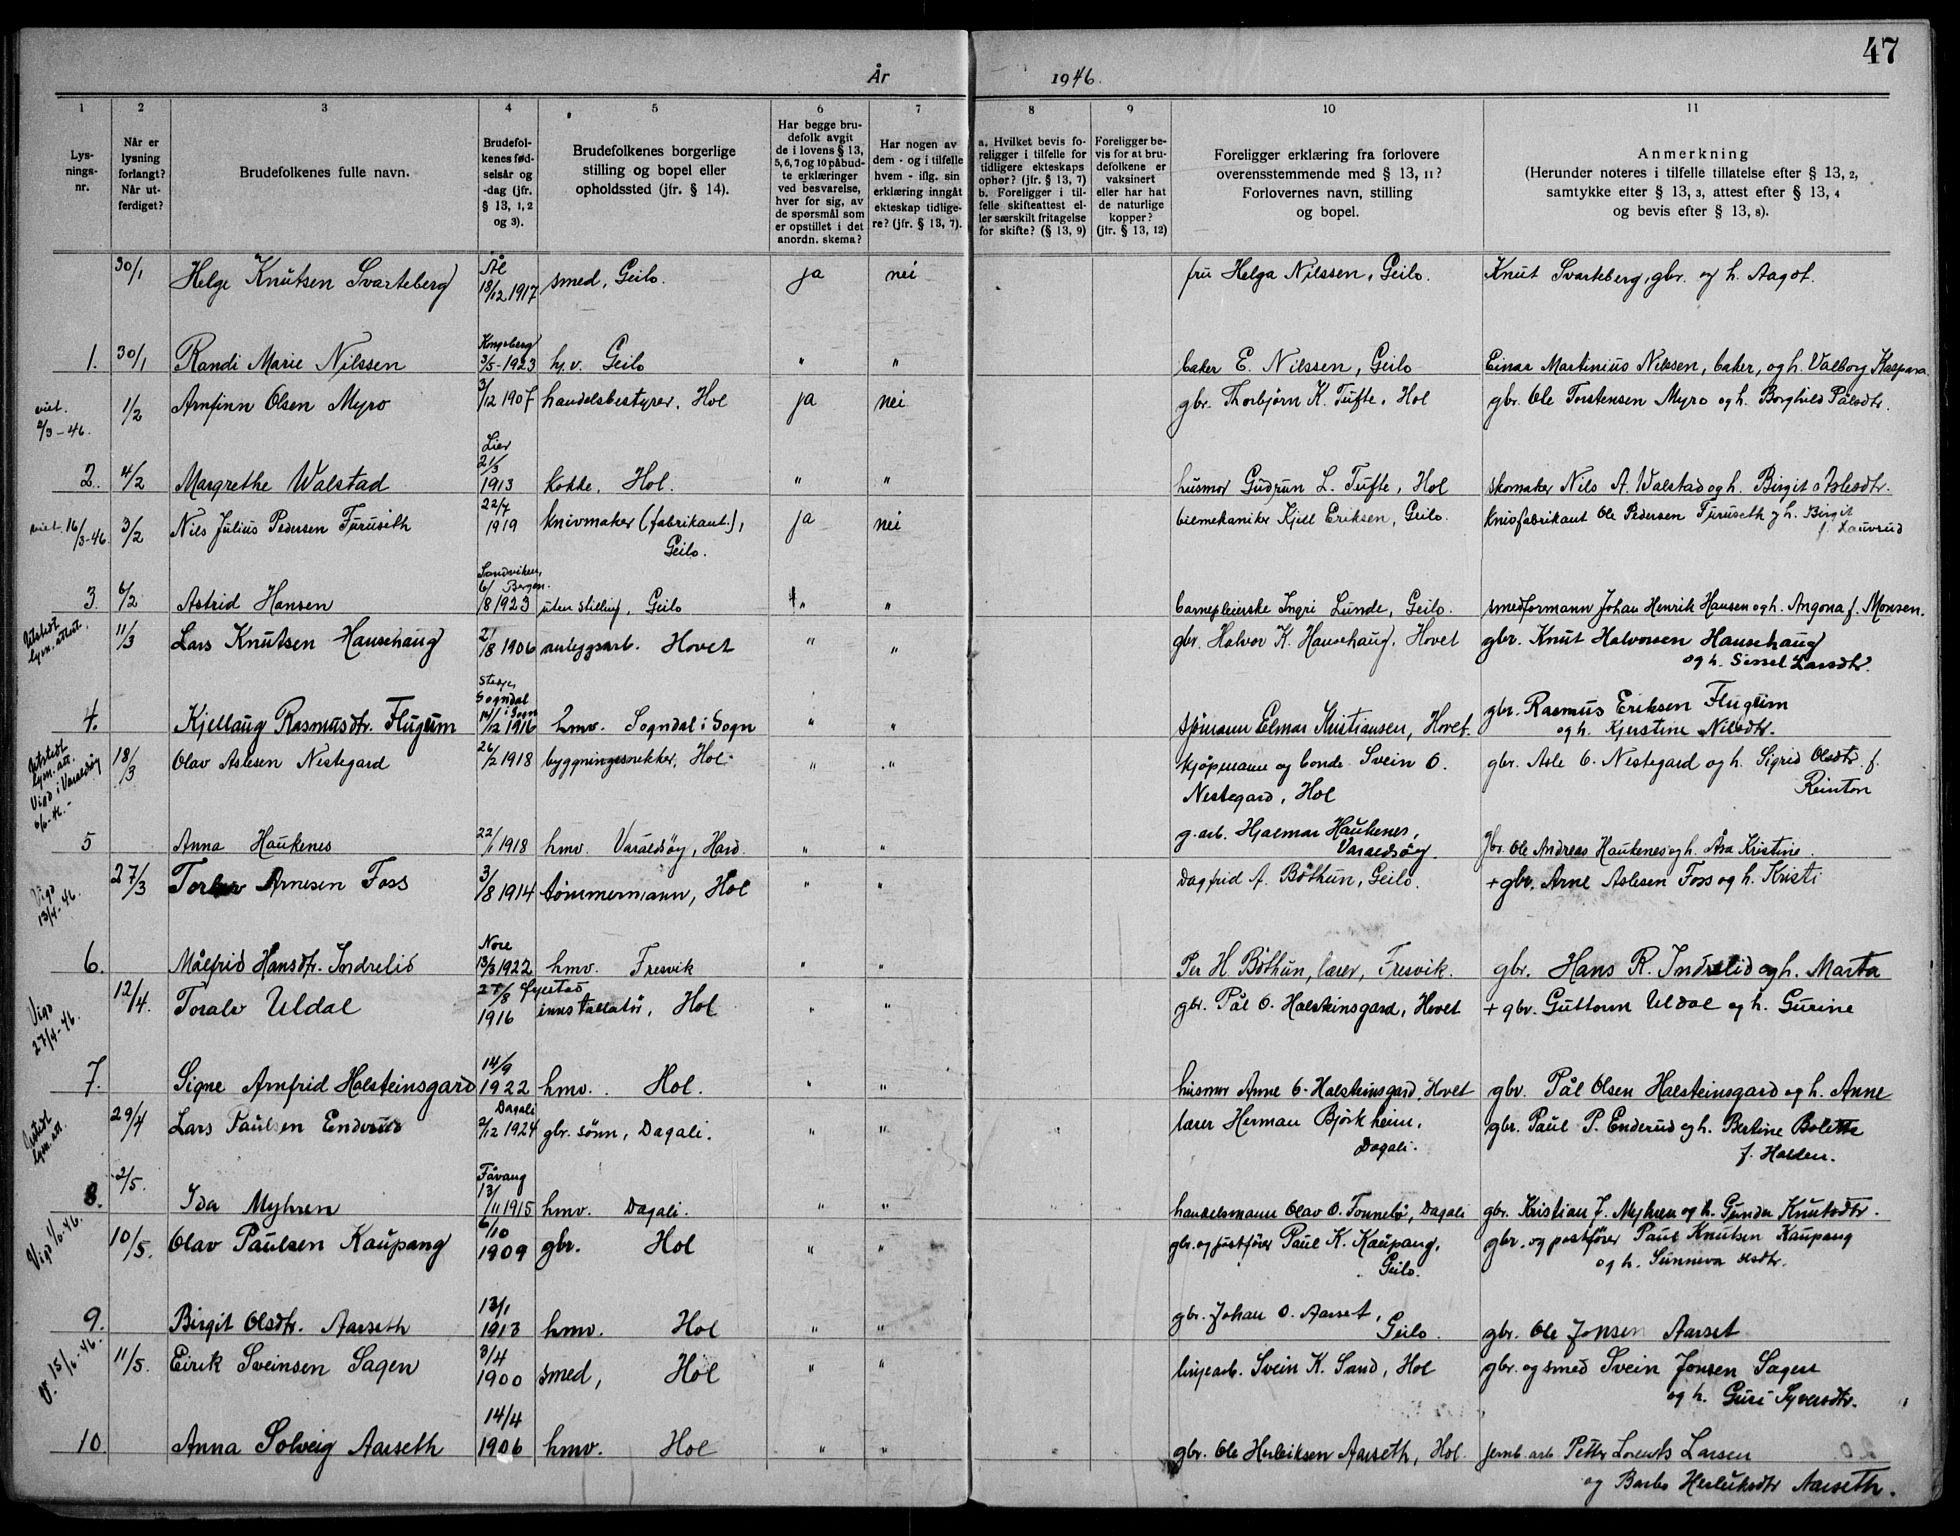 47
År 1946.
1 2 3 4 5 6 7 8 9 10 11
Lys-
nings-
nr.
Når er
lysning
forlangt?
Når ut-
ferdiget?
Brudefolkenes fulle navn.
Brudefol-
kenes fød-
selsår og
-dag (jfr.
§ 13, 1, 2
og 3).
Brudefolkenes borgerlige
stilling og bopel eller
opholdssted (jfr. § 14).
Har begge bru-
defolk avgit
de i lovens § 13,
5, 6, 7 og 10 påbud-
te erklæringer
ved besvarelse,
hver for sig, av
de spørsmål som
er opstillet i det
anordn. skema?
Har nogen av
dem - og i tilfelle
hvem - iflg. sin
erklæring inngått
ekteskap tidlige-
re? (jfr. § 13, 7).
a. Hvilket bevis fo-
religger i tilfelle for
tidligere ekteskaps
ophør? (§ 13, 7)
b. Foreligger i til-
felle skifteattest el-
ler særskilt fritagelse
for skifte? (§ 13, 9)
Foreligger be-
vis for at bru-
defolkene er
vaksinert
eller har hat
de naturlige
kopper?
(jfr. § 13, 12)
Foreligger erklæring fra forlovere
overensstemmende med § 13, 11?
Forlovernes navn, stilling
og bopel.
Anmerkning
(Herunder noteres i tilfelle tillatelse efter § 13, 2,
samtykke efter § 13, 3, attest efter § 13, 4
og bevis efter § 13, 8).
30/1 Helge Knutsen Svarteberg Ål 18/12 1917 smed, Geilo. ja nei fru Helga Nilssen, Geilo. Knut Svarteberg, gbr. og h. Aagot.
1. 30/1 Randi Marie Nilssen Kongsberg 3/5-1923 hj.v. Geilo " " baker E. Nilssen, Geilo Einar Martinius Nilssen, baker, og h. Valborg Kaspara.
viet 2/3-46. 1/2 Arnfinn Olsen Myro 3/12 1907 handelsbestyrer, Hol ja nei gbr. Thorbjørn K. Tufte, Hol gbr. Ole Torstensen Myro og h. Borghild Pålsdtr.
2. 4/2 Margrethe Walstad Lier 21/3 1913 kokke, Hol. " " husmor Gudrun L. Tufte, Hol skomaker Nils A. Walstad og h. Birgit Aslesdtr.
viet 16/3-46. 3/2 Nils Julius Pedersen Furuseth 22/7 1919 knivmaker (fabrikant), ja nei bilmekaniker Kjell Eriksen, Geilo. Knivfabrikant Ole Pedersen Furuseth og h. Birgit
Geilo. f. Lauvrud
3. 6/2 Astrid Hansen Sandviken, Bergen 6/8 1923 uten stilling, Geilo " " barnepleierske Ingri Lunde, Geilo. smedformann Johan Henrik Hansen og h. Angona f. Monsen.
Utstedt lysn. attest. 11/3 Lars Knutsen Hansehaug 2/8 1906 anleggsarb. Hovet " " gbr. Halvor K. Hansehaug, Hovet gbr. Knut Halvorsen Hansehaug
og h. Sissel Larsdtr.
4. Kjellaug Rasmusdtr. Flugum Sogndal i Sogn /12 1916 hmv. Sogndal i Sogn " " sjømann Elmar Kristiansen, Hovet. gbr. Rasmus Eriksen Flugum
og h. Kjerstine Nilsdtr.
Utstedt lysn. att. Vigd i Varaldsøy 18/3 Olav Aslesen Nestegard 26/2 1918 byggningssnekker, Hol " " kjøpmann og bonde Svein O.
Nestegard, Hol gbr. Asle O. Nestegard og h. Sigrid Olsdtr. f.
Reinton
5 Anna Haukenes 22/1 1918 hmv. Varaldsøy, Hard. " " g.arb. Hjalmar Haukenes,
Varaldsøy. gbr. Ole Andreas Haukenes og h. Åsa Kristine.
Vigd 13/4-46. 27/3 Arnesen Foss 3/8 1914 tømmermann, Hol " " Dagfrid A. Bøthun, Geilo. + gbr. Arne Aslesen Foss og h. Kristi
6. Målfrid Hansdtr. Indrelid Nore 13/3 1922 hmv. Fresvik " " Per H. Bøthun, lærer, Fresvik. gbr. Hans R. Indrelid og h. Marta
Vigd 27/4-46. 12/4. Toralv Uldal 27/8 1916 innstallatør, Hol " " gbr. Pål O. Halsteinsgard, Hovet + gbr. Guttorm Uldal og h. Gurine
7. Signe Arnfrid Halsteinsgard 14/9 1922 hmv. Hol. " " husmor Anne O. Halsteinsgard, Hovet gbr. Pål Olsen Halsteinsgard og h. Anne
Utstedt lysn. att. 29/4 Lars Paulsen Enderud Dagali 2/12 1924 gbr. sønn, Dagali. " " lærer Herman Bjørkheim,
Dagali. gbr. Paul P. Enderud og h. Bertine Bolette
f. Halden.
8. 2/5. Ida Myhren Fåvang 13/11 1915 hmv. Dagali. " " handelsmann Olav O. Tonnebø, Dagali gbr. Kristian J. Myhren og h. Gunda Knutsdtr.
Vigd 1/6-46. 10/5. Olav Paulsen Kaupang 6/10 1909 gbr. Hol " " gbr. og Paul K. Kaupang,
Geilo. gbr. og postfører Paul Knutsen Kaupang
og h. Sunneva Olsdtr.
9. Birgit Olsdtr. Aarseth 13/1 1913 hmv. Hol " " gbr. Johan O. Aarset,
Geilo. gbr. Ole Jonsen Aarset
V. 15/6-46. 11/5. Eirik Sveinsen Sagen 3/4 1900 smed, Hol " " linjearb. Svein K. Sand, Hol gbr. og smed Svein Jonsen Sagen
og h. Guri Syversdtr.
10. Anna Solveig Aarseth 14/4 1906 hmv. Hol " " gbr. Ole Herleiksen Aarseth, Hol. jernb. arb. Petter Lorents Larsen
og Barbo Herleiksdtr Aarseth.